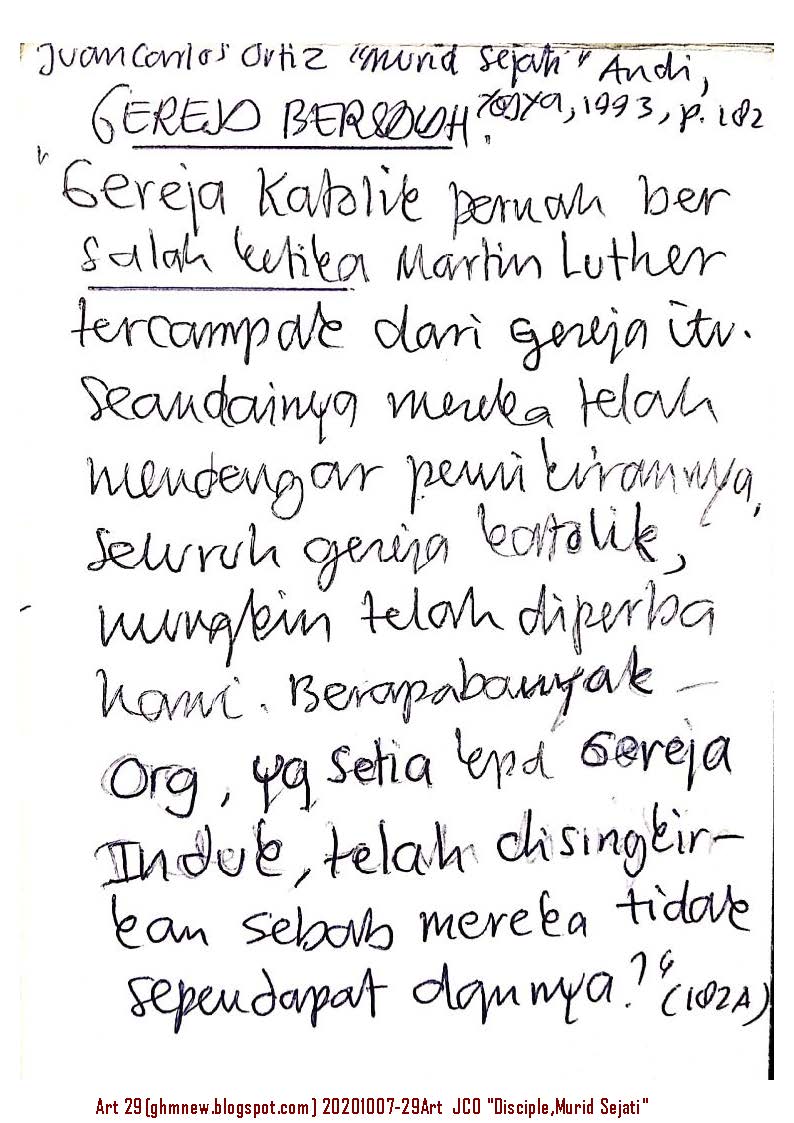 Juan Carlos Ortiz "Murid Sejati" Andi,
GEREJA BERSALAH Yogya, 1993, p. 182
"Gereja Katolik pernah ber
salah ketika Martin Luther
tercampak dari gereja itu.
Seandainya mereka telah
mendengar pemikirannya,
seluruh gereja katolik,
mungkin telah diperba
harui. Berapa banyak
Org, yg setia kpd Gereja
Induk, telah disingkir-
kan sebab mereka tidak
sependapat dgnnya?" (182A)
Art 29 (ghmnew.blogspot.com) 20201007-29Art JCO "Disciple,Murid Sejati"